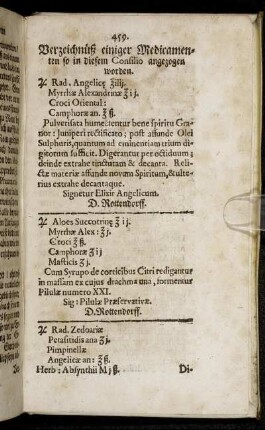 459.
Verzeichnüß einiger Medicamen-
ten so in diesem Consilio angezogen
worden.
℞ Rad. Angelicę ℥iij.
Myrrhæ Alexandrinæ ℥ij.
Croci Oriental:
Camphoræ an. ℥ß.
Pulverisata humectentur bene spiritu Gra-
nor: Juniperi rectificato; post affunde Olei
Sulphuris, quantum ad eminentiam trium di-
gitorum sufficit. Digerantur per octiduum;
deinde extrahe tincturam & decanta. Reli-
ctæ materiæ affunde novum Spiritum, & ulte-
rius extrahe decantaque.
Signetur Elixir Angelicum.
D. Rottendorff.
℞ Aloes Succotrinę ℥ij.
Myrrhæ Alex: ℥j.
Croci ℥ß.
Camphoræ ʒij
Masticis ʒj.
Cum Syrupo de corticibus Citri redigantur
in massam ex cujus drachma una, formentur
Pilulæ numero XXI.
Sig: Pilulæ Præservativæ.
D. Rottendorff.
℞ Rad. Zedoariæ
Petasitidis ana ℥j.
Pimpinellæ
Angelicæ an: ℥ß.
Herb: Absynthii M j ß.
Di-